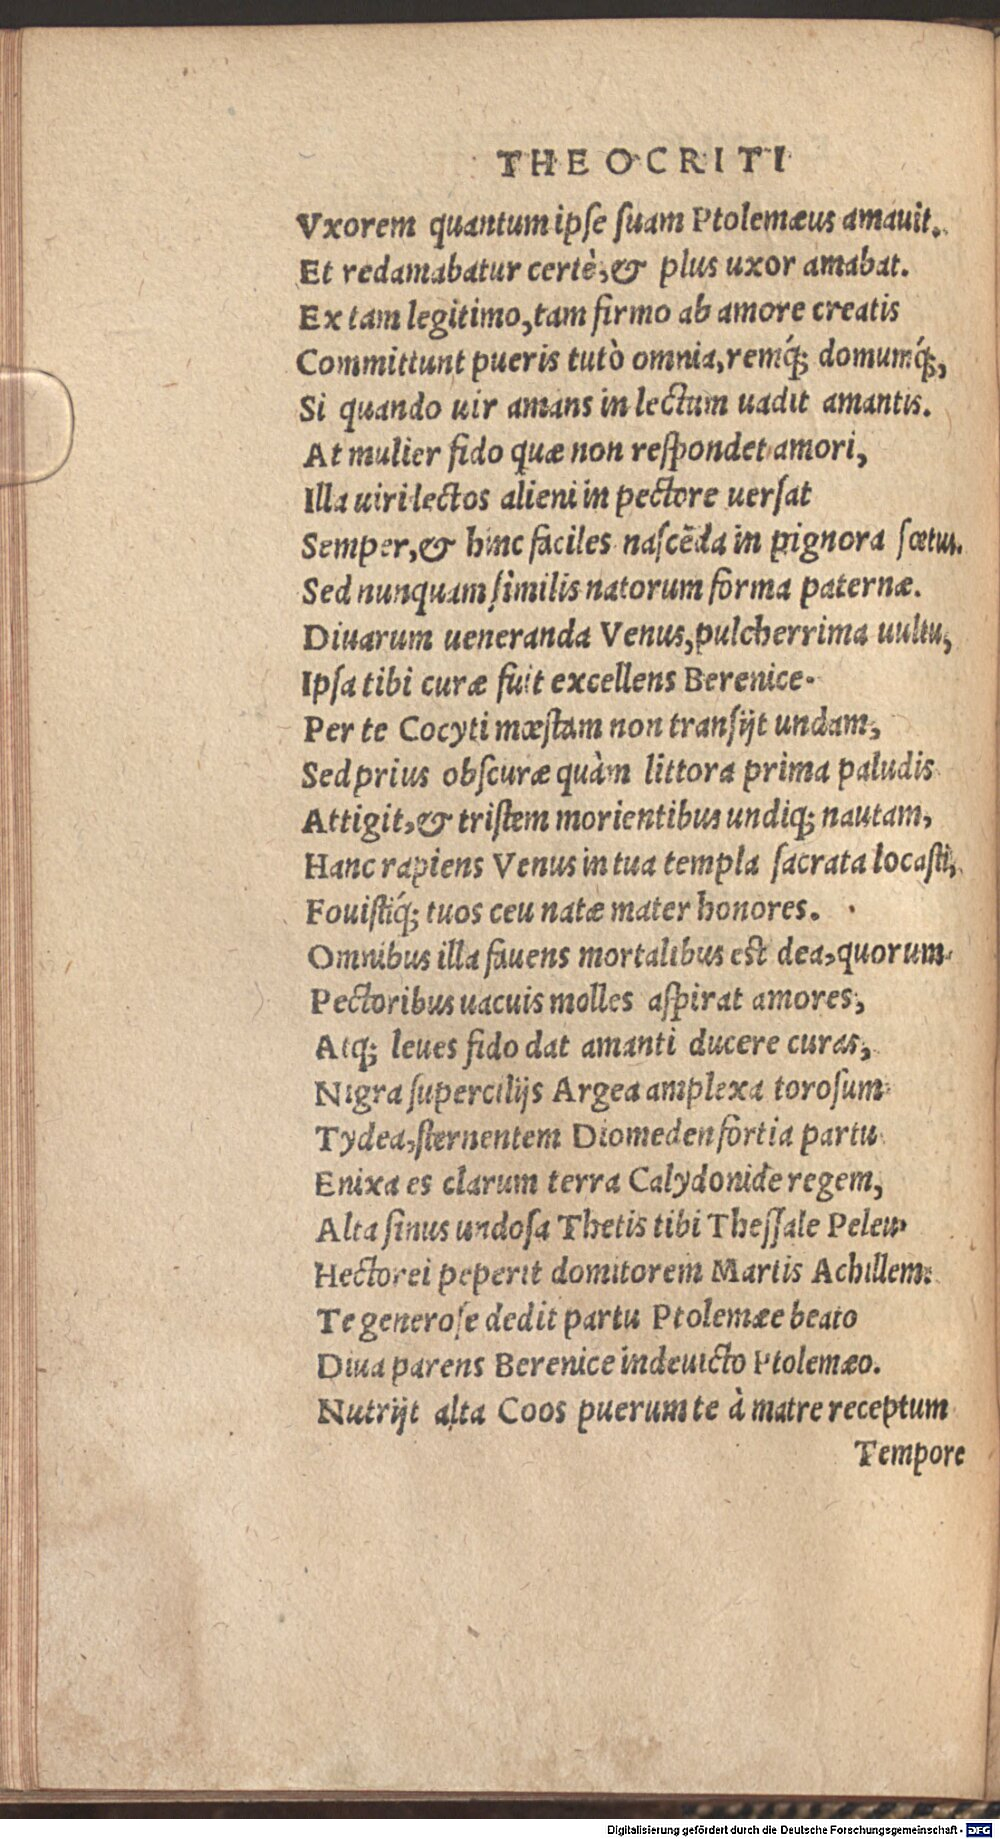 THEOCRITI
Vxorem quantum ipſe ſuam Ptolemæus amauit.
Et redamabatur certè, & plus uxor amabat.
Ex tam legitimo, tam firmo ab amore creatis
Committunt pueris tutò omnia, remq́; domumq́;,
Si quando uir amans in lectum uadit amantis.
At mulier fido quæ non reſpondet amori,
Illa uiri lectos alieni in pectore uerſat
Semper, & hinc faciles naſcẽda in pignora fœtus.
Sed nunquam ſimilis natorum forma paternæ.
Diuarum ueneranda Venus, pulcherrima uultu,
Ipſa tibi curæ fuit excellens Berenice.
Per te Cocyti mæſtam non tranſijt undam,
Sed prius obſcuræ quàm littora prima paludis
Attigit, & triſtem morientibus undiq; nautam,
Hanc rapiens Venus in tua templa ſacrata locaſti,
Fouiſtiq́; tuos ceu natæ mater honores.
Omnibus illa fauens mortalibus est dea, quorum
Pectoribus uacuis molles aſpirat amores,
Atq; leues fido dat amanti ducere curas,
Nigra ſupercilijs Argea amplexa toroſum
Tydea, ſternentem Diomeden fortia partu
Enixa es clarum terra Calydonide regem,
Alta ſinus undoſa Thetis tibi Theſſale Peleu
Hectorei peperit domitorem Martis Achillem.
Te generoſe dedit partu Ptolemæe beato
Diua parens Berenice indeuicto Ptolemæo.
Nutrijt alta Coos puerum te à matre receptum
Tempore
Digitalisierung gefördert durch die Deutsche Forschungsgemeinschaft - DFG